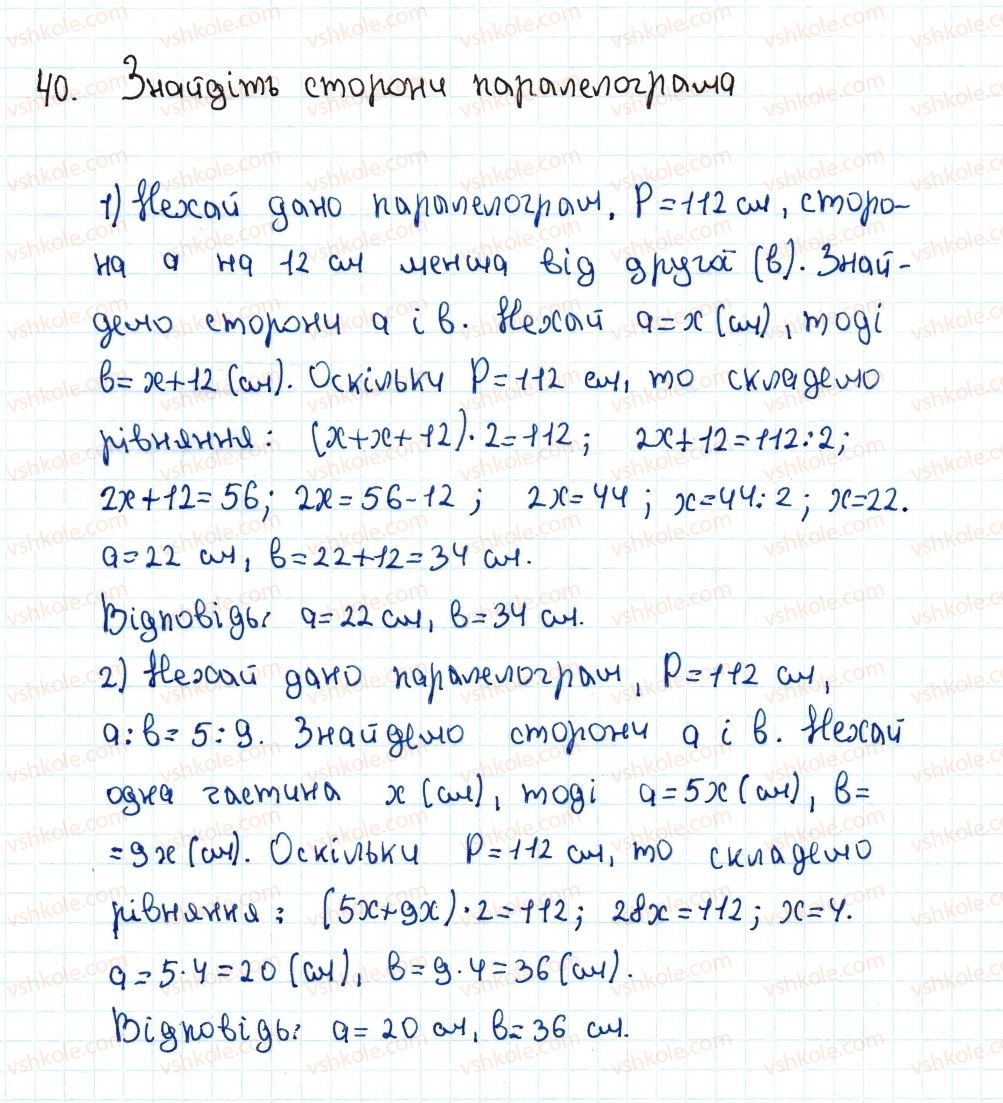 40. Знайдіть сторони паралелограма
1) Нехай дано паралелограм, P=112 см, сторо-
на а на 12 см менша від другої (в). Знай-
демо сторони а і в. Нехай а=х (см), тоді
в=х+12 (см). Оскільки P=112 см, то складемо
рівняння: (х+х+12)·2=112; 2х+12=112:2;
2х+12=56; 2х=56-12; 2х=44; х=44:2; х=22.
а=22 см, в=22+12=34 см.
Відповідь: а=22 см, в=34 см.
2) Нехай дано паралелограм, P=112 см,
а:в=5:9. Знайдемо сторони а і в. Нехай
одна частина х (см), тоді а=5х (см), в=
=9х (см). Оскільки P=112 см, то складемо
рівняння: (5х+9х)·2=112; 28х=112; х=4.
а=5·4=20 (см), в=9·4=36 (см).
Відповідь: а=20 см, в=36 см.